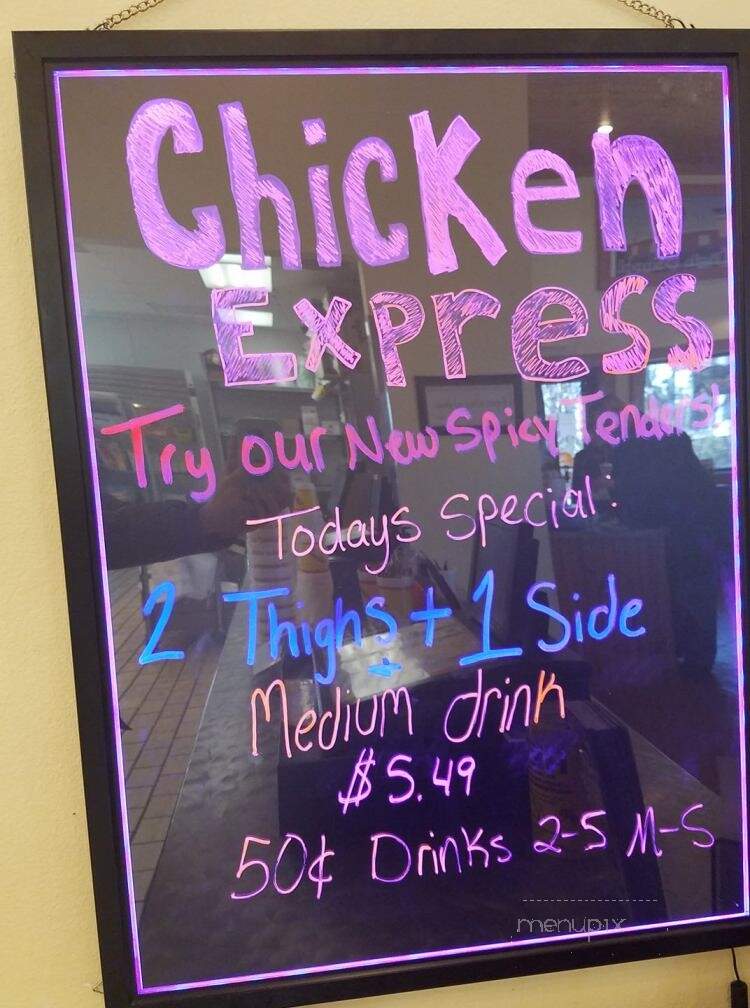 Chicken
Express
Try our New Spicy Tenders!
Todays special:
2 Thighs + 1 Side
+
Medium drink
$5.49
50¢ Drinks 2-5 M-S
menupix